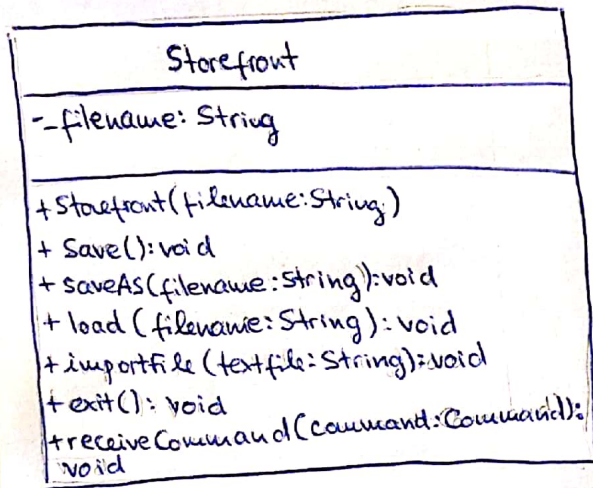 Storefront
-_filename: String
+ Storefront(filename:String)
+ Save(): void
+ saveAs(filename:String):void
+ load (filename: String): void
+ importFile (textfile: String): void
+ exit(): void
+ receiveCommand(command:Command):
void